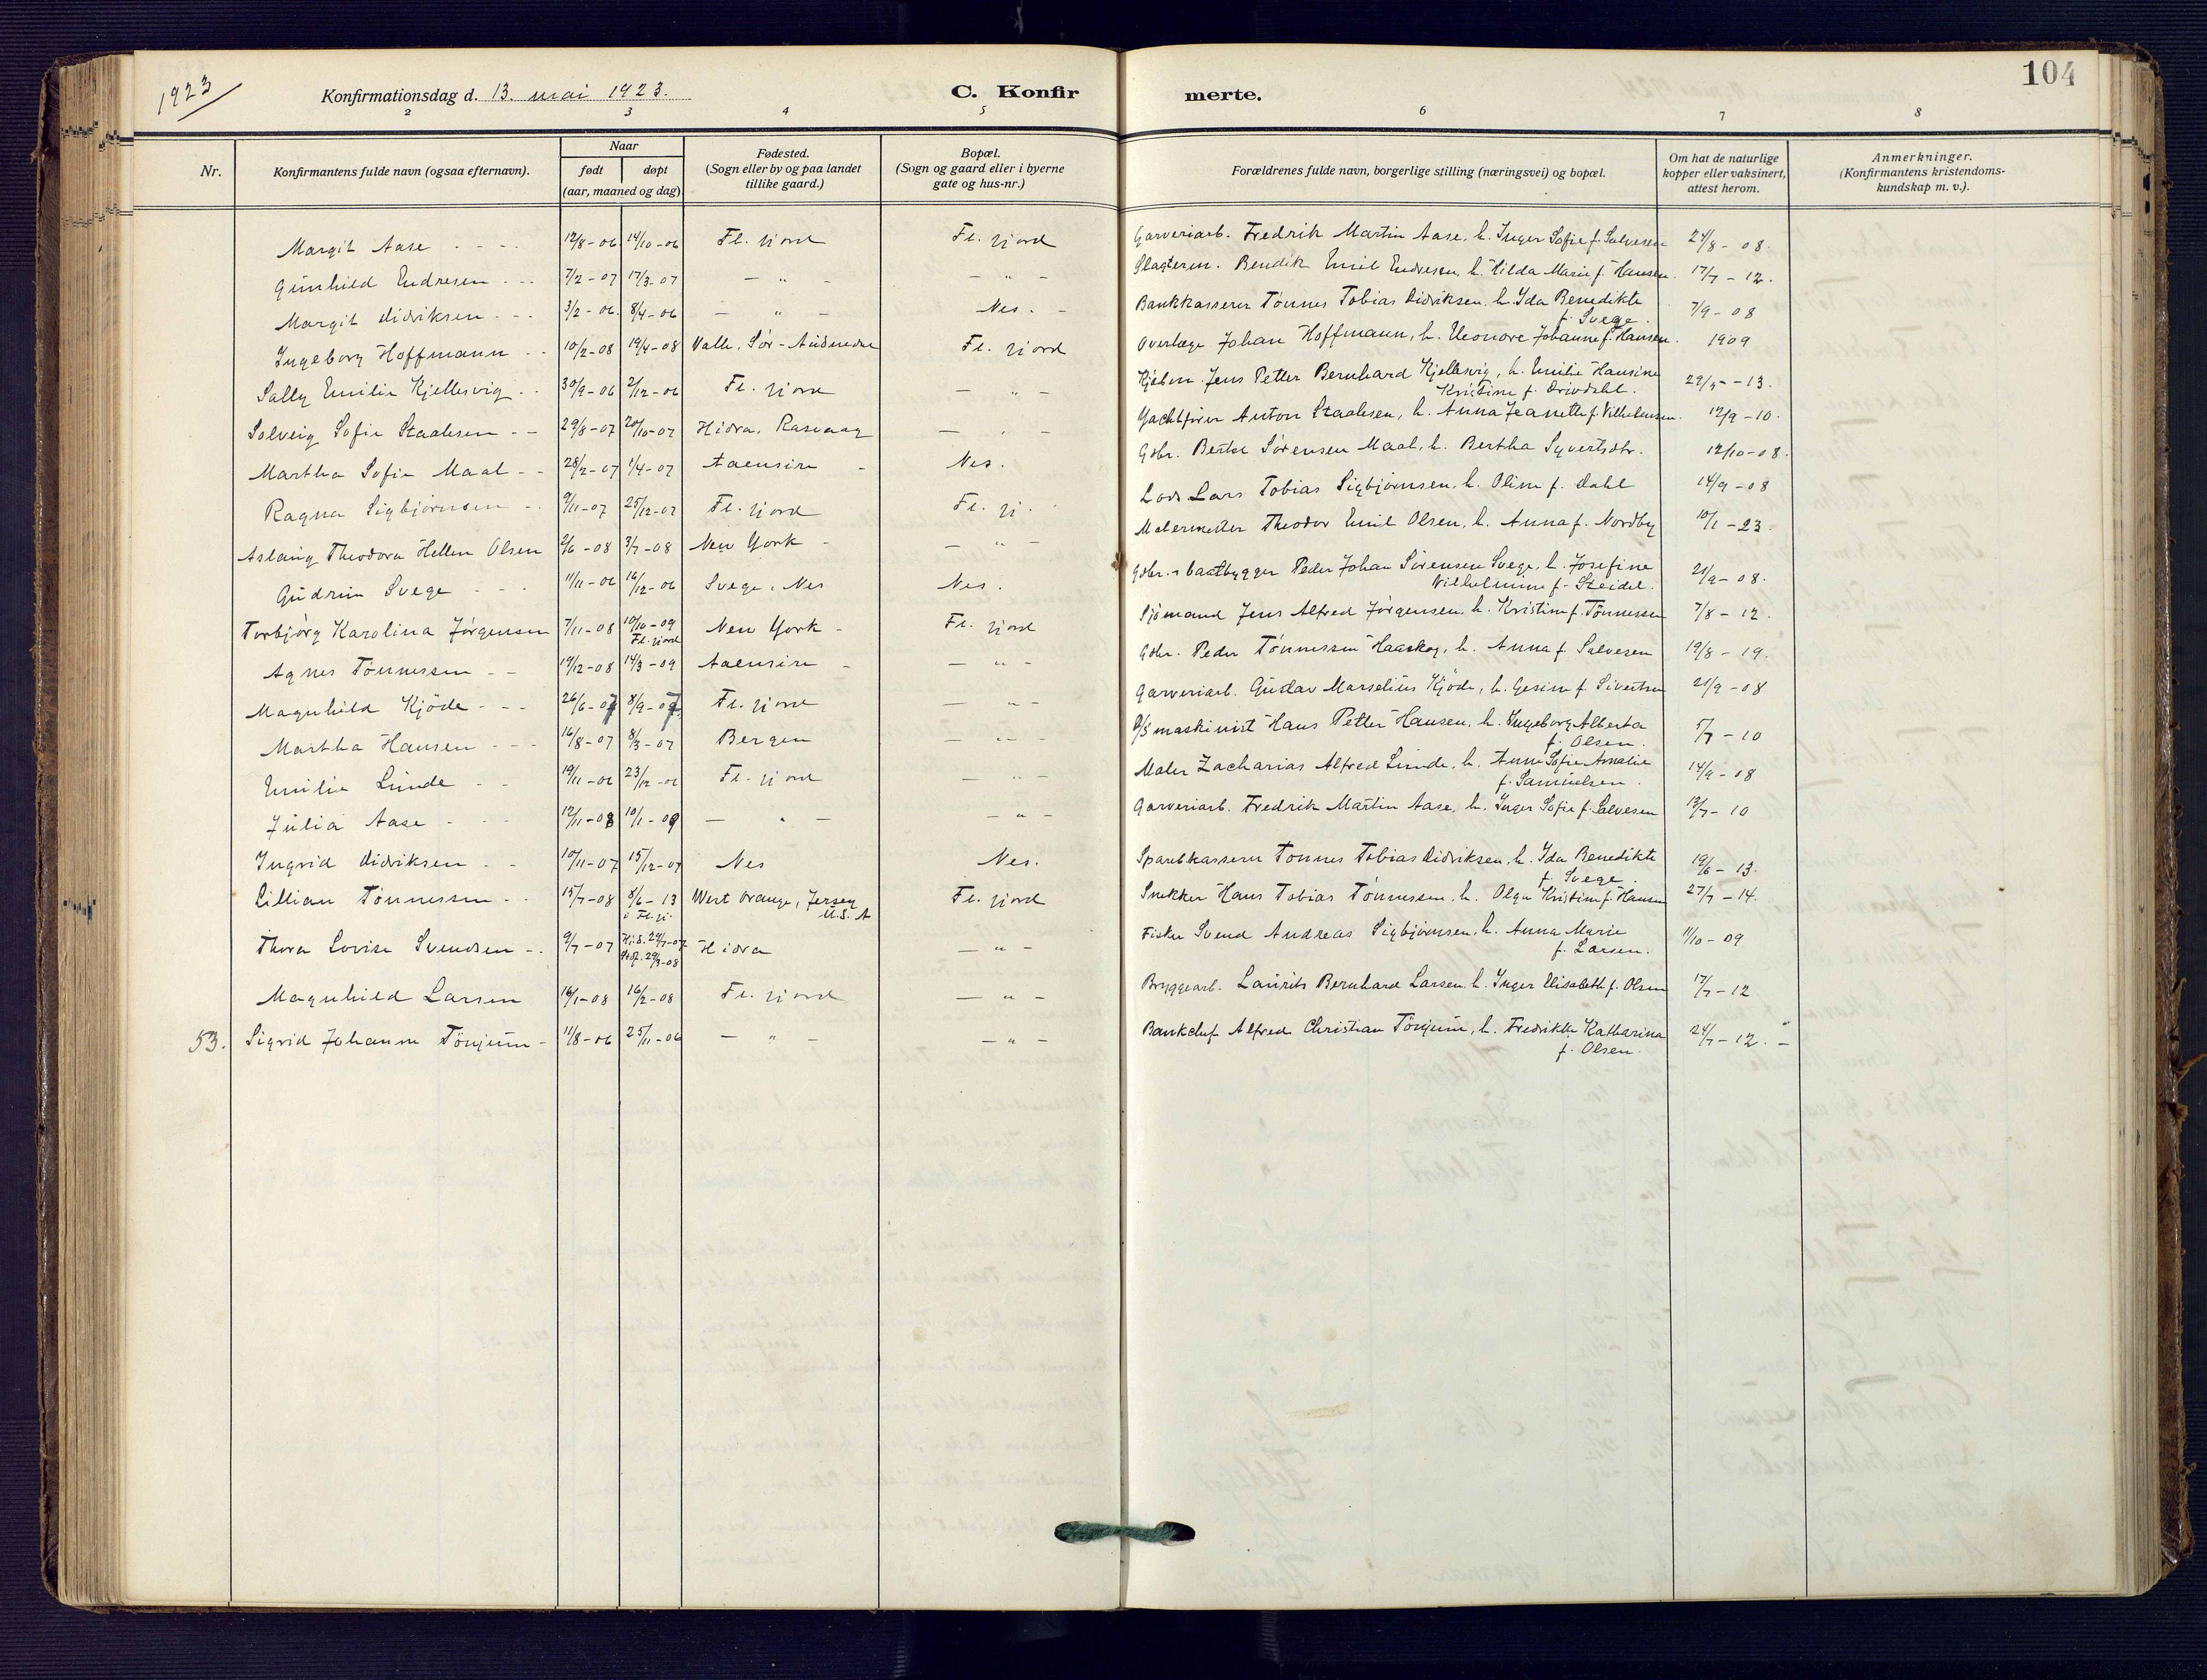 1923
Konfirmationsdag d. 13. mai 1923.
C. Konfir
merte.
104
2 3 4 5 6 7 8
Nr.
Konfirmantens fulde navn (ogsaa efternavn).
Naar
født døpt
(aar, maaned og dag)
Fødested.
(Sogn eller by og paa landet
tillike gaard.)
Bopæl.
(Sogn og gaard eller i byerne
gate og hus-nr.)
Forældrenes fulde navn, borgerlige stilling (næringsvei) og bopæl.
Om hat de naturlige
kopper eller vaksinert,
attest herom.
Anmerkninger.
(Konfirmantens kristendoms-
kundskap m. v.).
Margit Aase 12/8-06 14/10-06 Fl. fjord Fl. fjord Garveriarb. Fredrik Martin Aase, h. Inger Sofie f. Salvesen 24/8-08.
Gunhild Endresen 7/2-07 17/3-07 - " - - " - Slagterm. Bendik Emil Endresen, h. Hilda Marie f. Hansen. 17/7-12.
Margit Didriksen 3/2-06. 8/4-06 - " - Nes. - Bankkasserer Tönnes Tobias Didriksen, h. Ida Benedikte
f. Svege. 7/9-08
Ingeborg Hoffmann 10/2-08 19/4-08 Valle, Sör-Audnedal Fl. fjord Overlæge Johan Hoffmann, h. Eleonore Johanne f. Hansen. 1909
Sally Emilie Kjellesvig 30/9-06 2/12-06 Fl. fjord - " - Kjöbm. Jens Petter Bernhard Kjellesvig, h. Emilie Hansine
Kristine f. Drivdahl. 29/5-13.
Solveig Sofie Staalesen 29/8-07 20/10-07 Hidra, Rasvaag - " - Yachtförer Anton Staalesen, h. Anna Jeanette f. Vilhelmsen. 12/9-10.
Martha Sofie Maal 28/2-07 1/4-07 Aaensire - Nes. Gdbr. Sörensen Maal, h. Bertha Syvertsdtr. 12/10-08.
Ragna Sigbjörnsen 9/11-07 25/12-07 Fl. fjord Fl. fj. Lods Lars Tobias Sigbjörnsen, h. Oline f. Dahl 14/9-08
Aslaug Theodora Hellen Olsen 2/6-08 3/7-08 New York - - " - Malermester Theodor Emil Olsen, h. Anna f. Nordby 10/1-23.
Gudrun Svege 11/11-06 16/12-06 Svege, Nes Nes. Gdbr. & baatbygger Peder Johan Sörensen Svege, h. Josefine
Vilhelmine f. Steidel. 21/9-08.
Torbjörg Karolina Jörgensen 7/11-08 10/10-09
Fl. fjord New York - Fl. fjord Sjömand Jens Alfred Jörgensen, h. Kristine f. Tönnessen 7/8-12.
Agnes Tönnessen 19/12-08 14/3-09 Aaensire - - " - Gdbr. Peder Tönnessen Haaskog, h. Anna f. Salvesen 19/8-19.
Magnhild Kjöde 26/6-07 8/9-07 Fl. fjord - " - Garveriarb. Gustav Marselius Kjöde, h. Gesine f. Sivertsen 21/9-08
Martha Hansen 16/8-07 8/3-07 Bergen - " - D/S maskinist Hans Petter Hansen, h. Ingeborg Alberta
f. Olsen. 5/7-10
Emilie Lunde 19/11-06 23/12-06 Fl. fjord - " - Maler Zacharias Alfred Lunde, h. Anne Sofie Amalie
f. Samuelsen. 14/9-08
Julia Aase 12/11-08 10/1-09 - " - - " - Garveriarb. Fredrik Martin Aase, h. Inger Sofie f. Salvesen 13/7-10
Ingrid Didriksen 10/11-07 15/12-07 Nes Nes. Sparebkasserer Tönnes Tobias Didriksen, h. Ida Benedikte
f. Svege. 19/6-13.
Lillian Tönnessen 15/7-08 8/6-13
i Fl. fj. West Orange, Jersey
U.S.A Fl. fjord Snekker Hans Tobias Tönnessen, h. Olga Kristine f. Hansen 27/7-14.
Thora Lovise Svendsen 9/7-07 Hj.d. 24/7-07
29/3-08 Hidra - " - Fisker Svend Andreas Sigbjörnsen, h. Anna Marie
f. Larsen. 11/10-09
Magnhild Larsen 16/1-08 16/2-08 Fl. fjord - " - Bryggearb. Laurits Bernhard Larsen, h. Inger Elisabeth f. Olsen 17/7-12
53. Sigrid Johanne Tönjum 11/8-06 25/11-06 - " - - " - Bankchef Alfred Christian Tönjum, h. Fredrikke Katharina
f. Olsen. 24/7-12. -